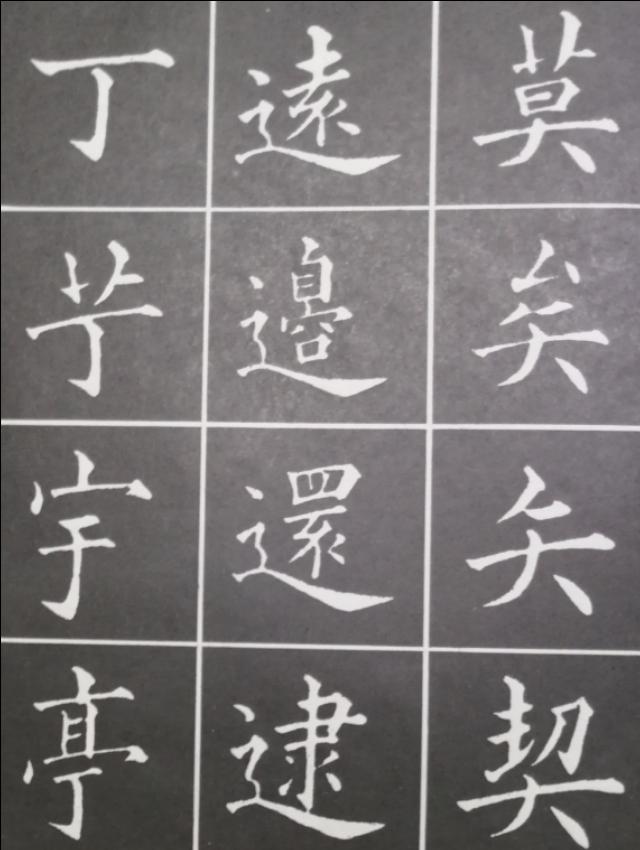 莫矣矢契
遠邊還逮
丁艼宇亭